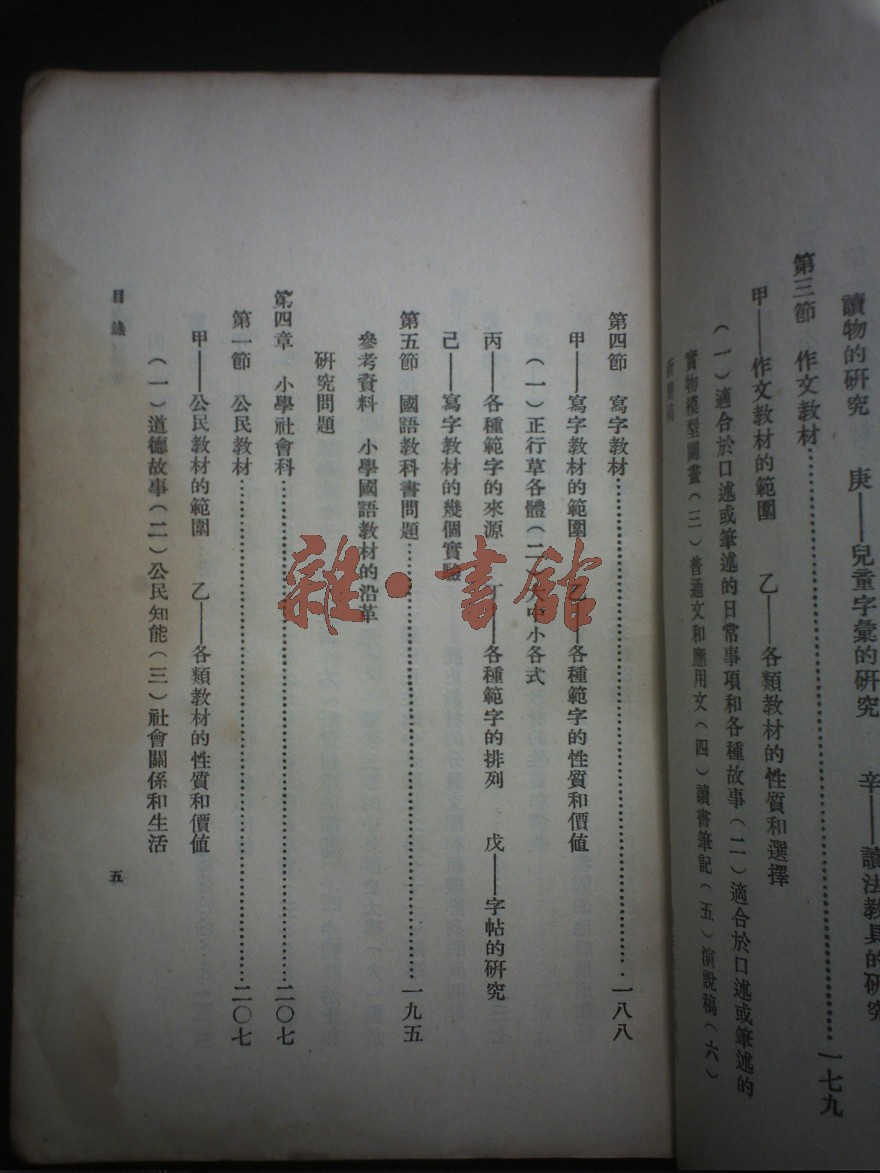 讀物的研究　庚——兒童字彙的研究　辛——讀法教具的研究
第三節　作文教材……一七九
甲——作文教材的範圍　乙——各類教材的性質和選擇
（一）適合於口述或筆述的日常事項和各種故事（二）適合於口述或筆述的
實物模型圖畫（三）普通文和應用文（四）讀書筆記（五）演說稿（六）
第四節　寫字教材……一八八
甲——寫字教材的範圍　乙——各種範字的性質和價值
（一）正行草各體（二）大中小各式
丙——各種範字的來源　丁——各種範字的排列　戊——字帖的研究
己——寫字教材的幾個實驗
第五節　國語教科書問題……一九五
參考資料　小學國語教材的沿革
研究問題
第四章　小學社會科……二〇七
第一節　公民教材……二〇七
甲——公民教材的範圍　乙——各類教材的性質和價值
（一）道德故事（二）公民知能（三）社會關係和生活
目錄
五
雜·書館